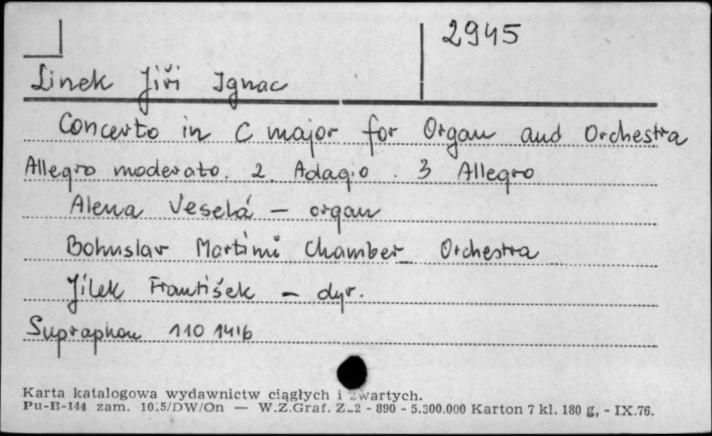 2945
Linek Jiři Ignac
Concerto in C major for Organ and Orchestra
Allegro moderato. 2. Adagio. 3 Allegro
Alena Veselá – organ
Bohuslav Martinů Chamber Orchestra
Jílek František – dyr.
Supraphon 110 1416
Karta katalogowa wydawnictw ciągłych i zwartych.
Pu-B-144 zam. 1015/DW/On — W.Z.Graf. Z-2 - 890 - 5.300.000 Karton 7 kl. 180 g, - IX.76.